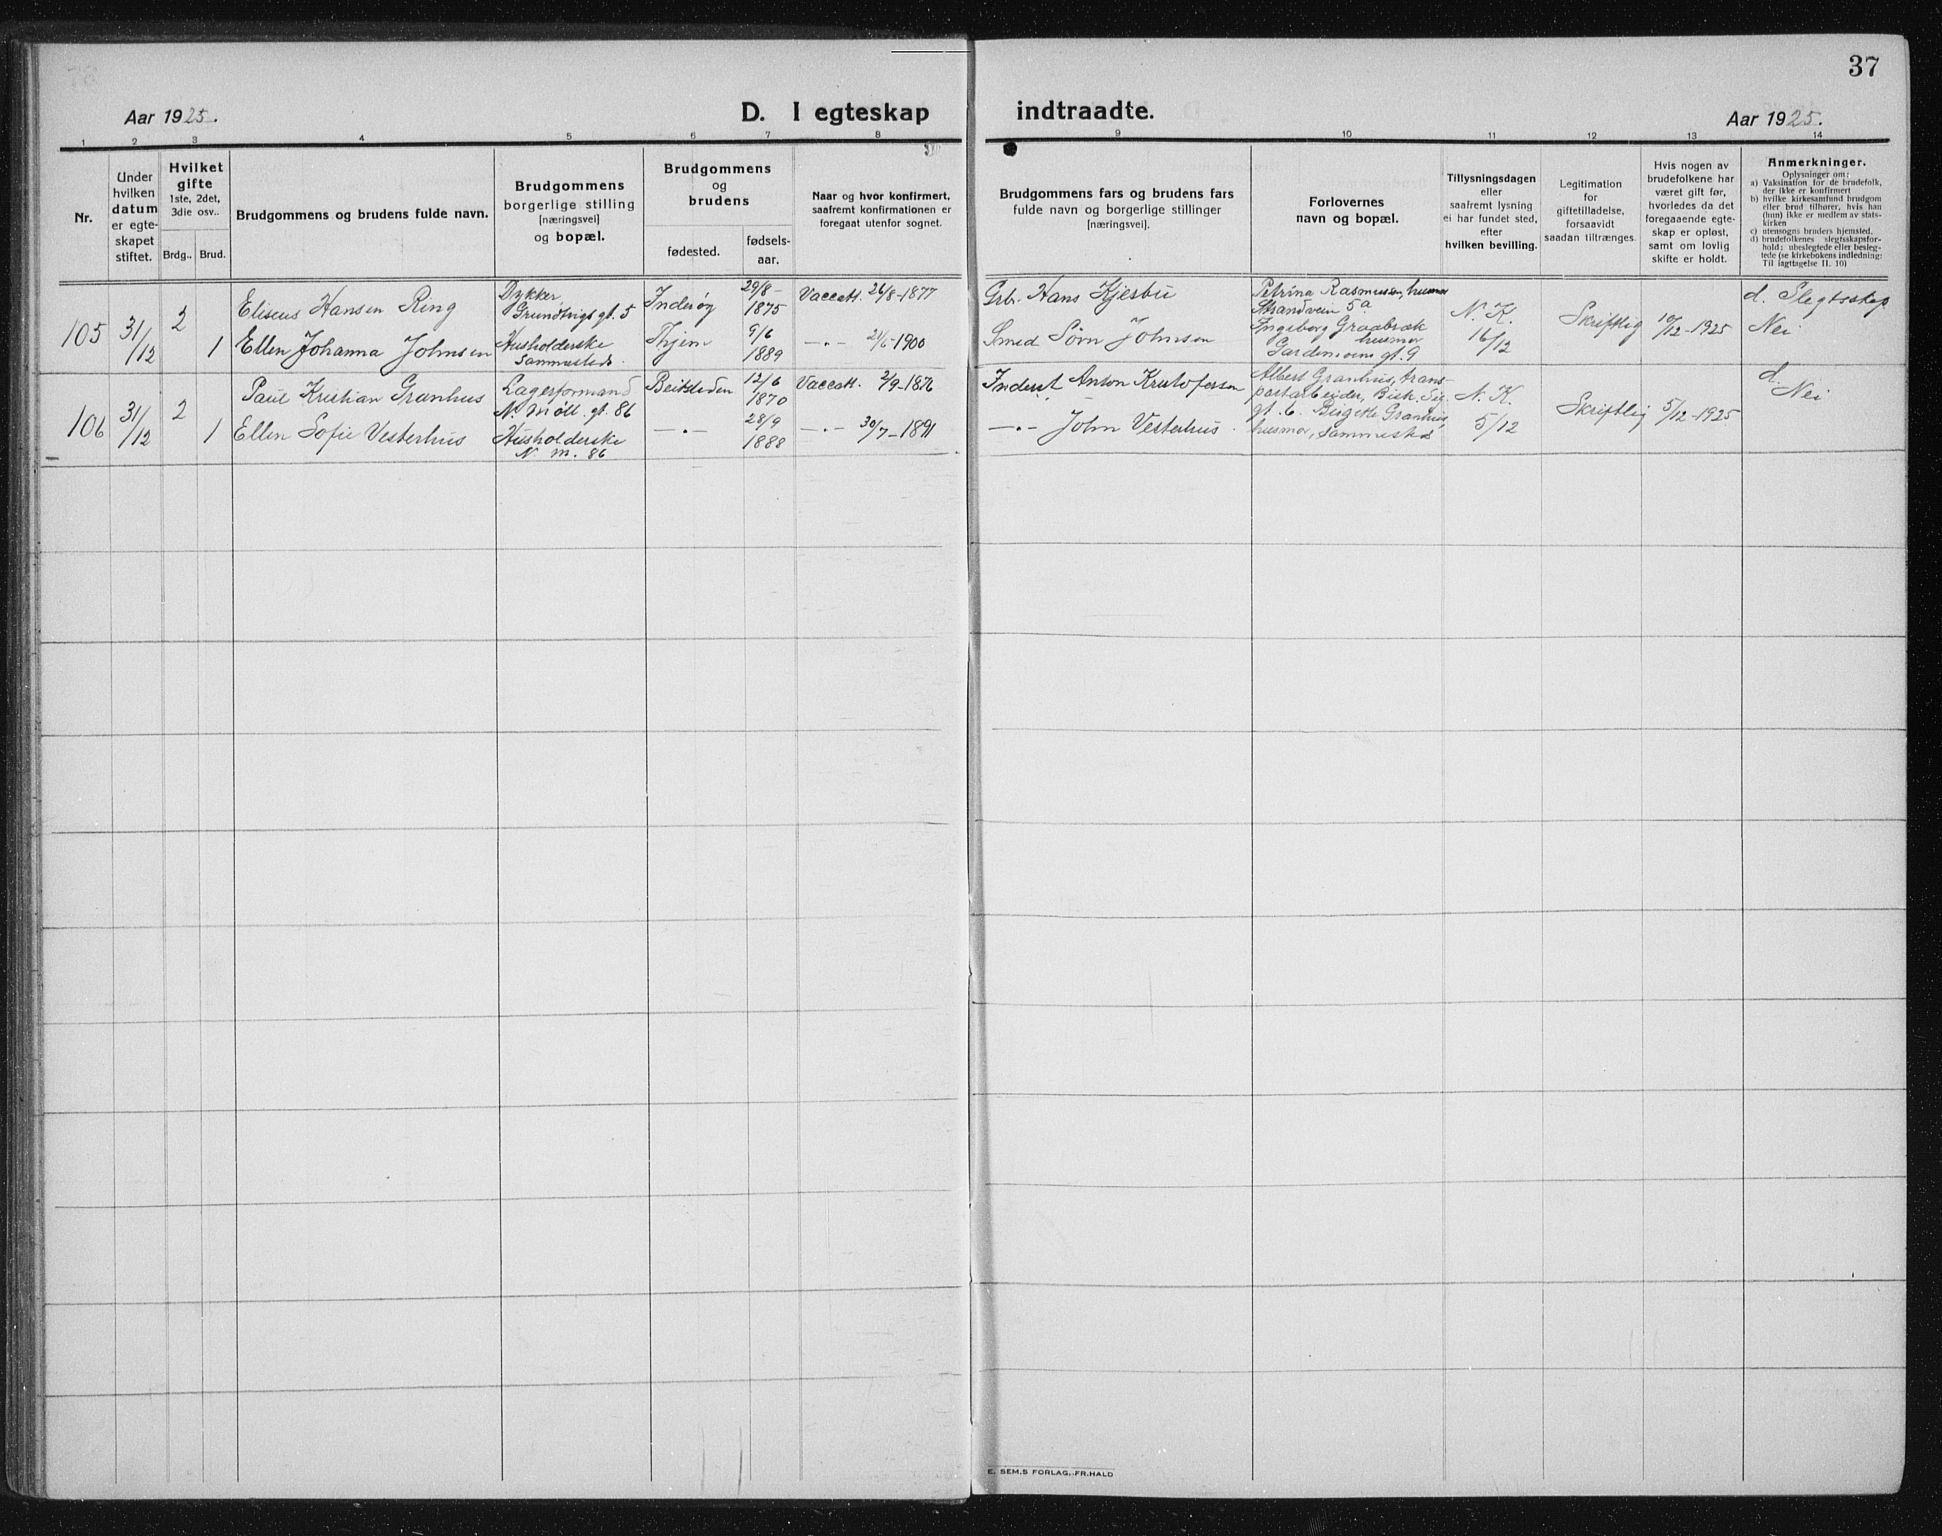 37
Aar 1925.
D. I egteskap
indtraadte.
Aar 1925.
1 2 3 4 5 6 7 8 9 10 11 12 13 14
Nr.
Under
hvilken
datum
er egte-
skapet
stiftet.
Hvilket
gifte
1ste, 2det,
3die osv..
Brdg.. Brud.
Brudgommens og brudens fulde navn.
Brudgommens
borgerlige stilling
[næringsvei]
og bopæl.
Brudgommens
og
brudens
fødested.
fødsels-
aar.
Naar og hvor konfirmert,
saafremt konfirmationen er
foregaat utenfor sognet.
Brudgommens fars og brudens fars
fulde navn og borgerlige stillinger
[næringsvei].
Forlovernes
navn og bopæl.
Tillysningsdagen
eller
saafremt lysning
ei har fundet sted,
efter
hvilken bevilling.
Legitimation
for
giftetilladelse,
forsaavidt
saadan tiltrænges.
Hvis nogen av
brudefolkene har
været gift før,
hvorledes da det
foregaaende egte-
skap er opløst,
samt om lovlig
skifte er holdt.
Anmerkninger.
Oplysninger om:
a) Vaksination for de brudefolk,
der ikke er konfirmert
b) hvilke kirkesamfund brudgom
eller brud tilhører, hvis han
(hun) ikke er medlem av stats-
kirken
c) utensogns bruders hjemsted.
d) brudefolkenes slegtsskapsfor-
hold: ubeslegtede eller besleg-
tede (se kirkebokens indledning:
Til iagttagelse II. 10)
105 31/12 2 1
Eliseus Hansen Ring
Ellen Johanna Johnsen
Dykker,
Grundtvigs gt. 5
Husholderske
sammesteds.
Inderøy
29/8-
1875
9/6
1889
Vaccatt. 26/8-1877
-„- 21/6-1900
Grb. Hans Kjesbu
Smed Sørn Johnsen
Petrina Rasmussen, husmor
Strandvein 5a
Ingeborg Graabræk
husmor
Gardemoens gt. 9
N. K.
16/12
Skriftlig
10/12-1925
d. Slegtsskap
Nei
106 31/12 2 1
Paul Kristian Granhus
Ellen Sofie Vesterhus
Lagerformand
N. Møll. gt. 86
Husholderske
N. M. 86
Beitstaden
-„-
12/6
1870
28/9
1888
Vaccatt. 2/9-1876
-„- 30/7-1891
Inderst. Anton Kristofersen
-„- John Vesterhus.
Albert Granhus, trans-
portarbeider, Bisk. Sig.
gt. 6. Birgitte Granhus,
husmor, sammesteds
N. K.
5/12
Skriftlig
5/12-1925
d.
Nei
E. SEM,S FORLAG,.FR.HALD